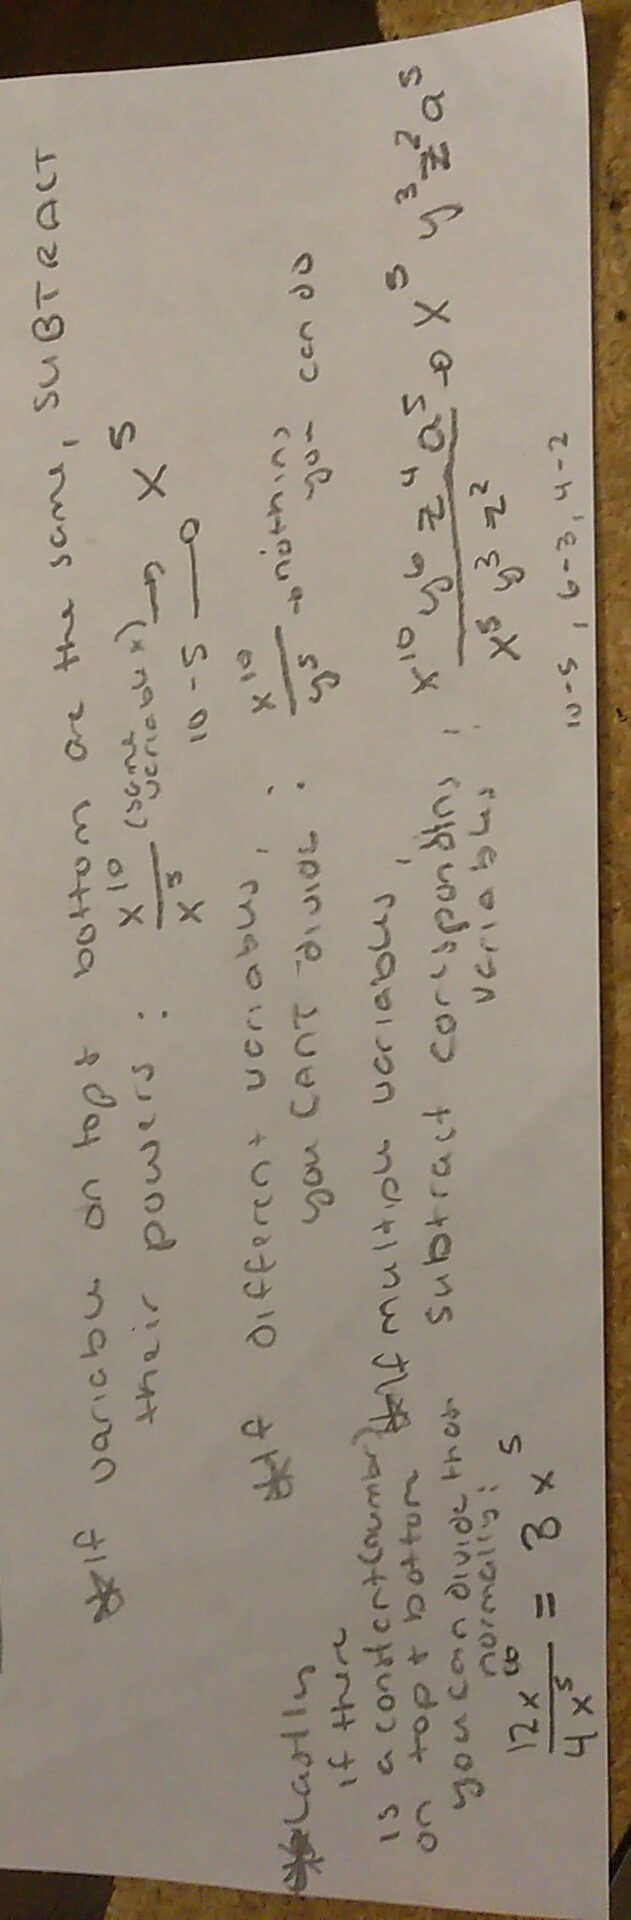 *If variable on top & bottom are the same, SUBTRACT
their powers : x^10/x^5 (same variable x) → x^5
10 - 5 →
*If different variables, : x^10/y^5 → nothing
you CANT divide : you can do
*If multiple variables, : x^10 y^6 z^4 a^5 / x^5 y^3 z^2 → x^5 y^3 z^2 a^5
subtract corresponding
variables
10-5, 6-3, 4-2
*Lastly
if there
is a constant(number)
on top & bottom
you can divide that
normally:
12x^10/4x^5 = 3x^5